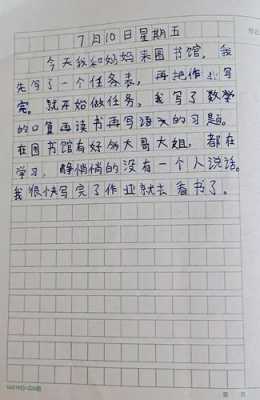 7月10日星期五
今天我和妈妈来图书馆。我
先写了一个任务表,再把作业写
完。就开始做任务,我写了数学
的口算再读书再写语文的习题。
在图书馆有好多大哥大姐,都在
学习,静悄悄的没有一个人说话。
我很快写完了作业就去看书了。